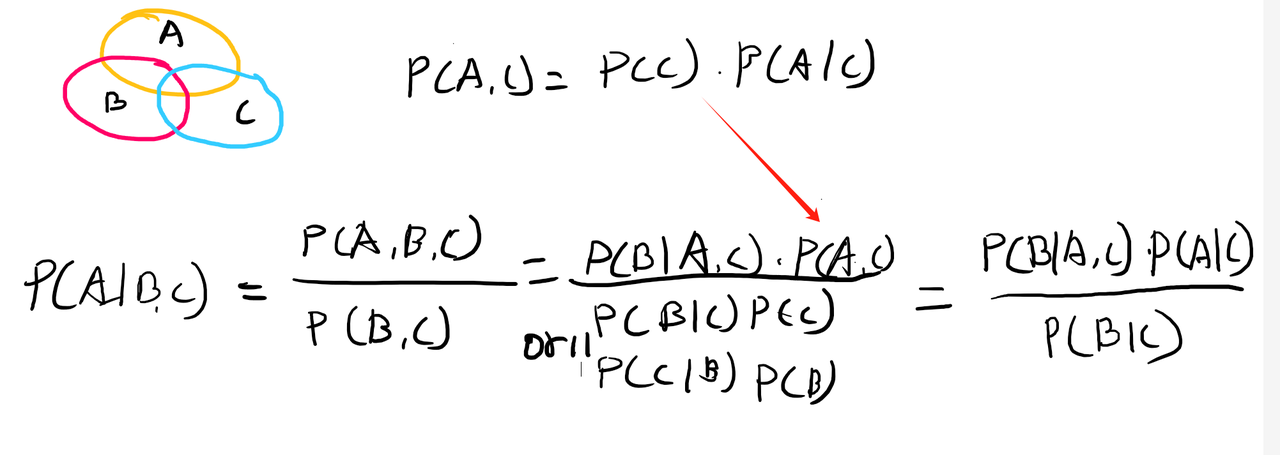 A
B
C
P(A,C) = P(C) · P(A|C)
P(A|B,C) = P(A,B,C) / P(B,C) = P(B|A,C) · P(A,C) / P(B|C) P(C) = P(B|A,C) · P(A|C) / P(B|C)
or || P(C|B) P(B)